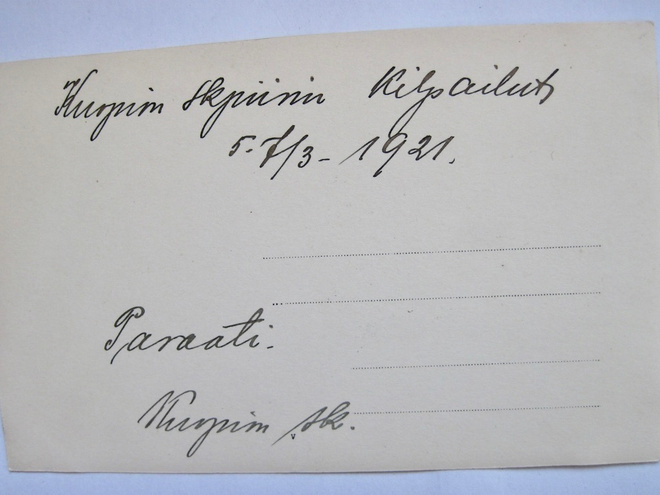 Kuopion Skpiirin Kilpailut
5-7/3-1921.
Paraati.
Kuopion sk.